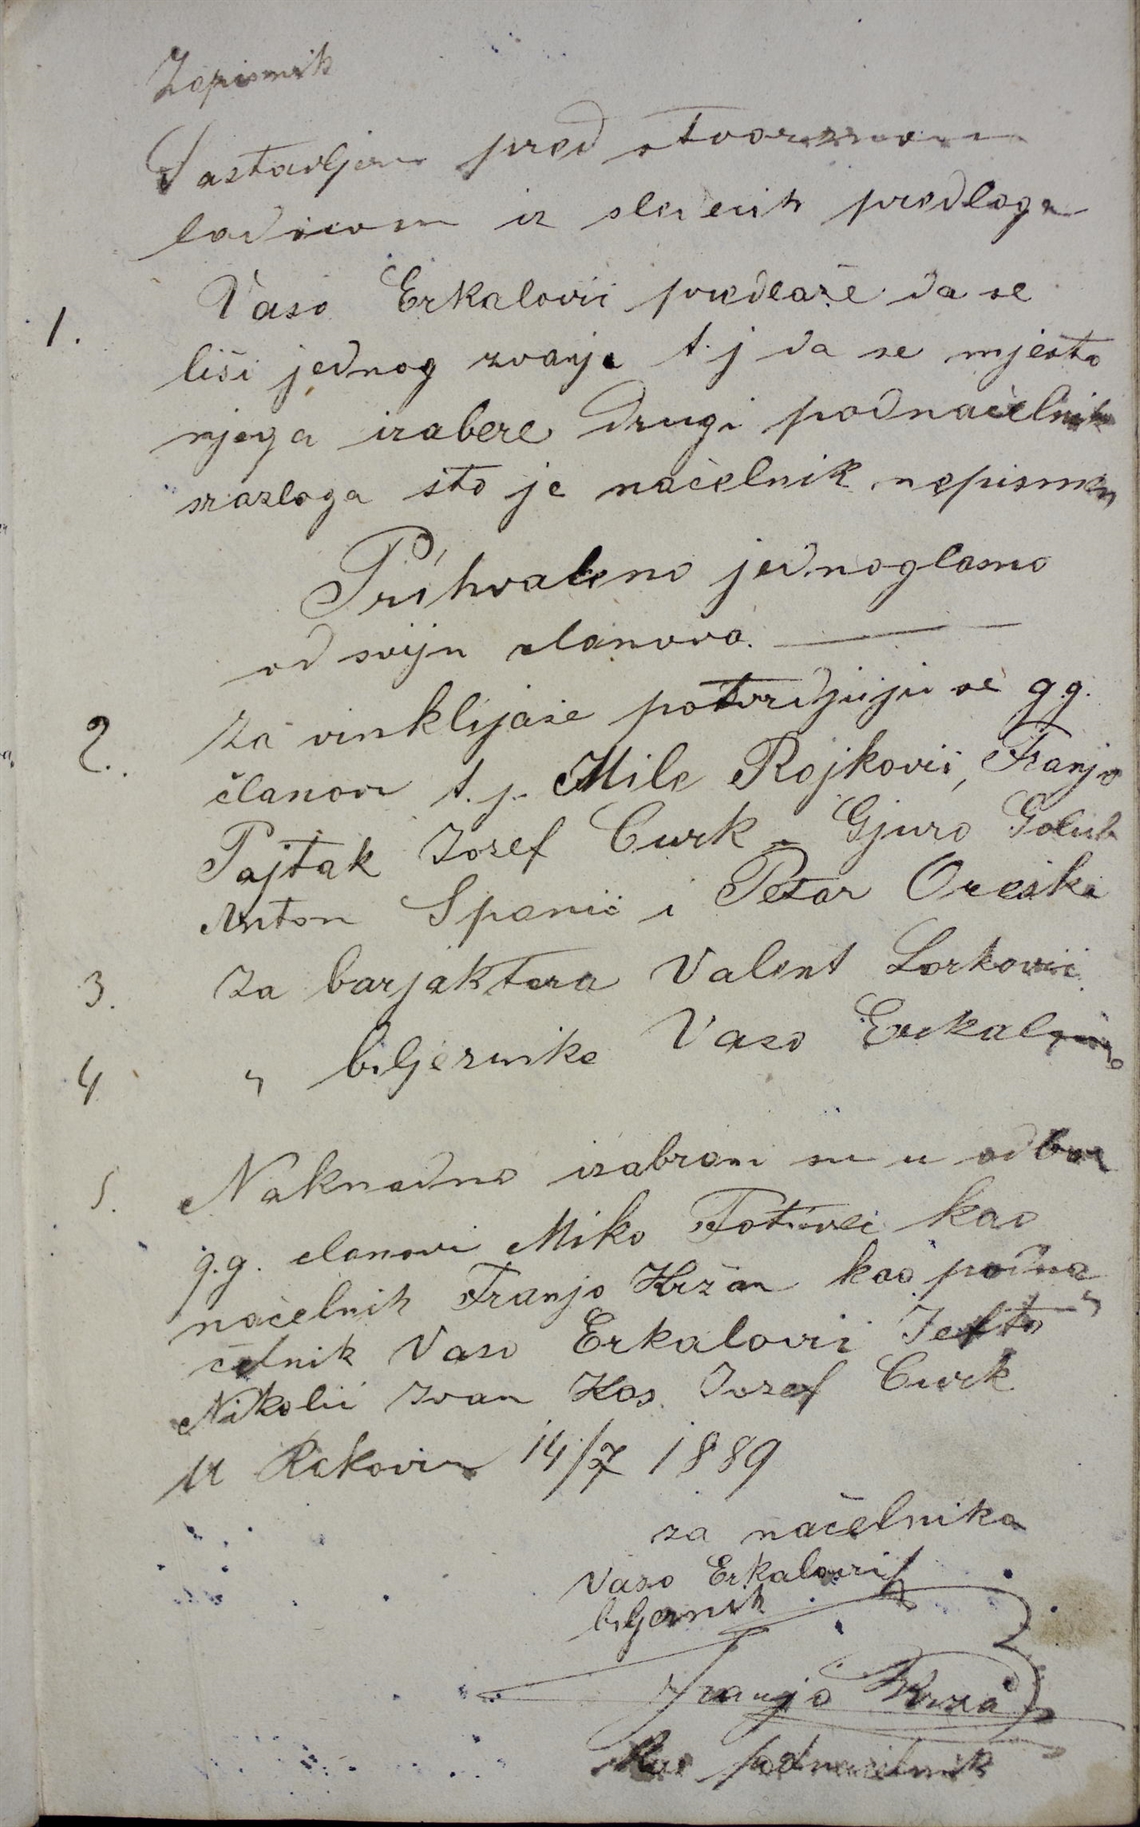 Zapisnik
Sastavljen pred otvorenom
ladicom iz sledecih predloga
1. Vaso Erkalović predlaže da se
liši jednog zvanja t.j da se mjesto
njega izabere drugi podnačelnik
srazloga što je načelnik nepismen
Prihvaleno jednoglasno
od sviju članova.
2. Za vinklijaše potvrdjuju se gg.
članovi t.j. Mile Rajković, Franjo
Pajtak Josef Curk, Gjuro Golub
Anton Spanić i Petar Oreški
3. Za barjaktara Valent Lorković
4 " biljeznika Vaso Erkalović
5. Naknadno izabrani su u odbor
g.g. članovi Miko kao
načelnik Franjo Kržan kao podna
čelnik Vaso Erkalović Jefto
Nikolić Ivan Kos Josef Curk
U Rakovcu 14/7 1889
za načelnika
Vaso Erkalović
biljeznik
Franjo Krža
kao podnačelnik